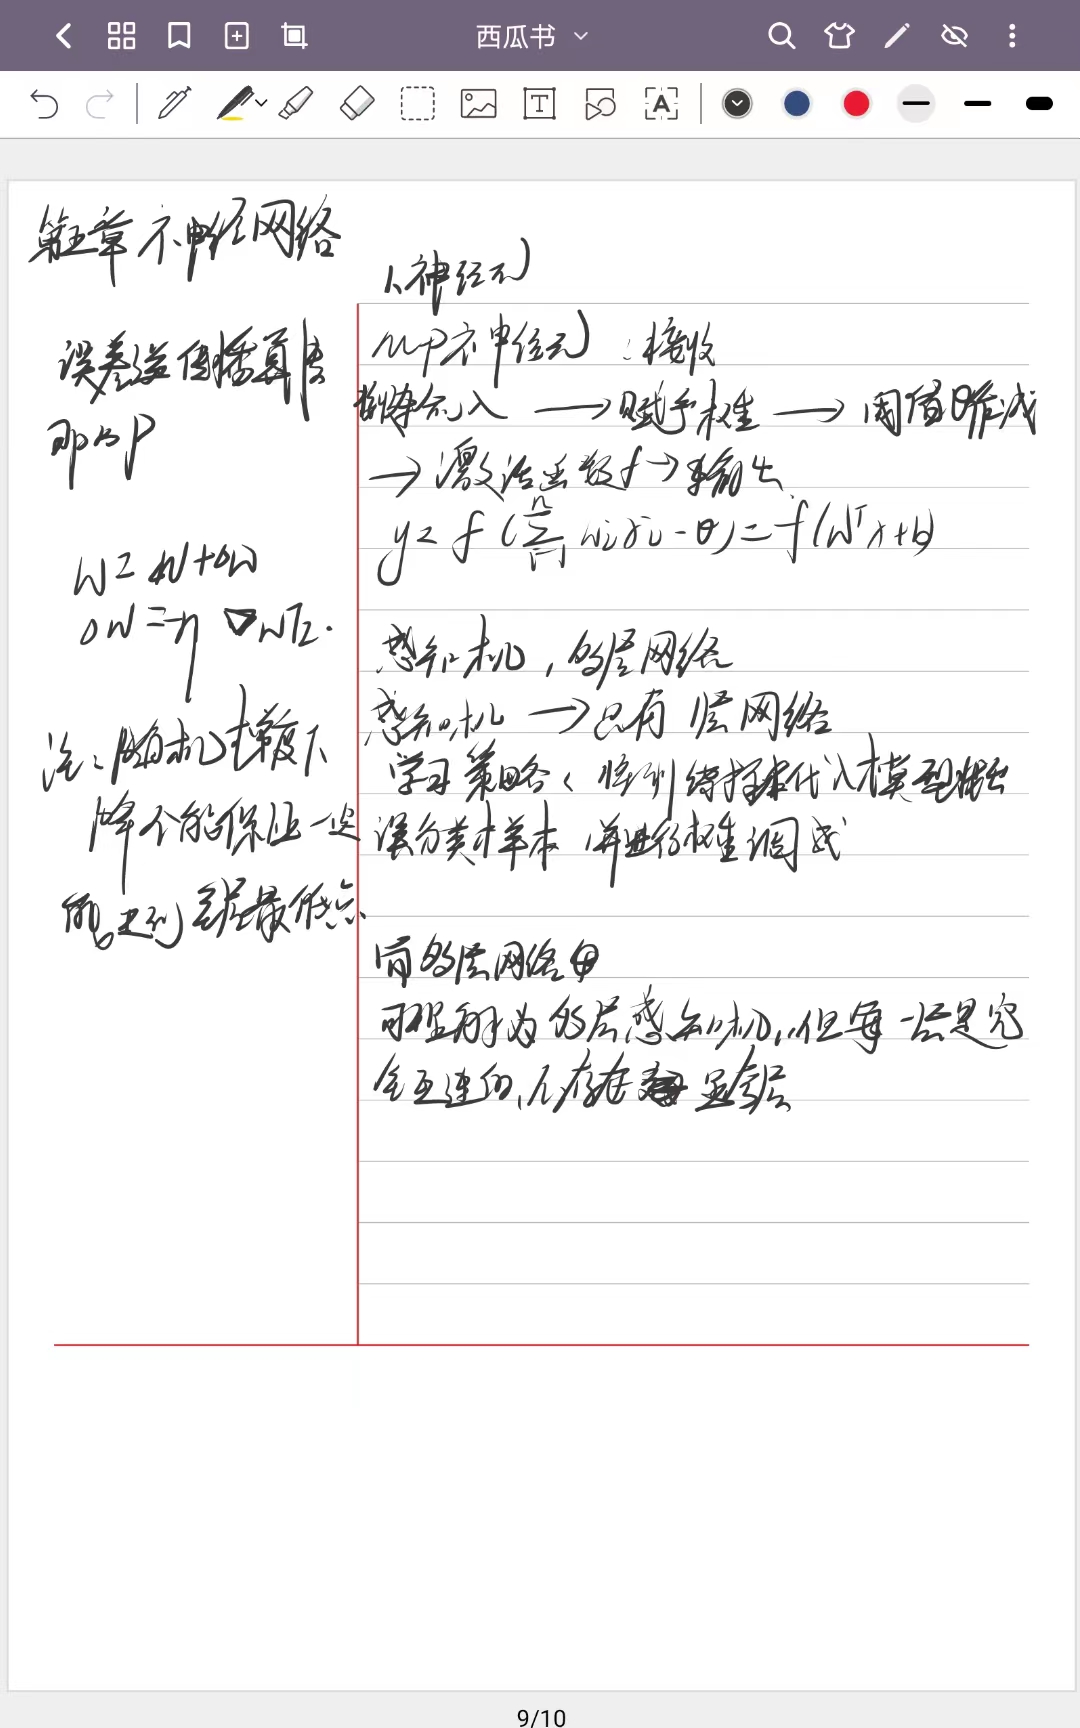 西瓜书
第五章 神经网络
误差逆传播算法
即BP
W=W+ΔW
ΔW=-η ∇wE.
注:随机梯度下
降不能保证一定
能达到全局最低点
1、神经元
MP神经元:接收
输入 → 赋予权重 → 阈值θ作减
→ 激活函数f → 输出
y= f (∑ⁿᵢ₌₁ wᵢxᵢ - θ) = f(Wᵀx+b)
感知机,多层网络
感知机 → 只有 层网络
学习策略: 将训练样本代入模型找出
误分类样本 并进行权重调试
多层网络中
可理解为多层感知机,但每一层是完
全互连的,不存在 层
9/10